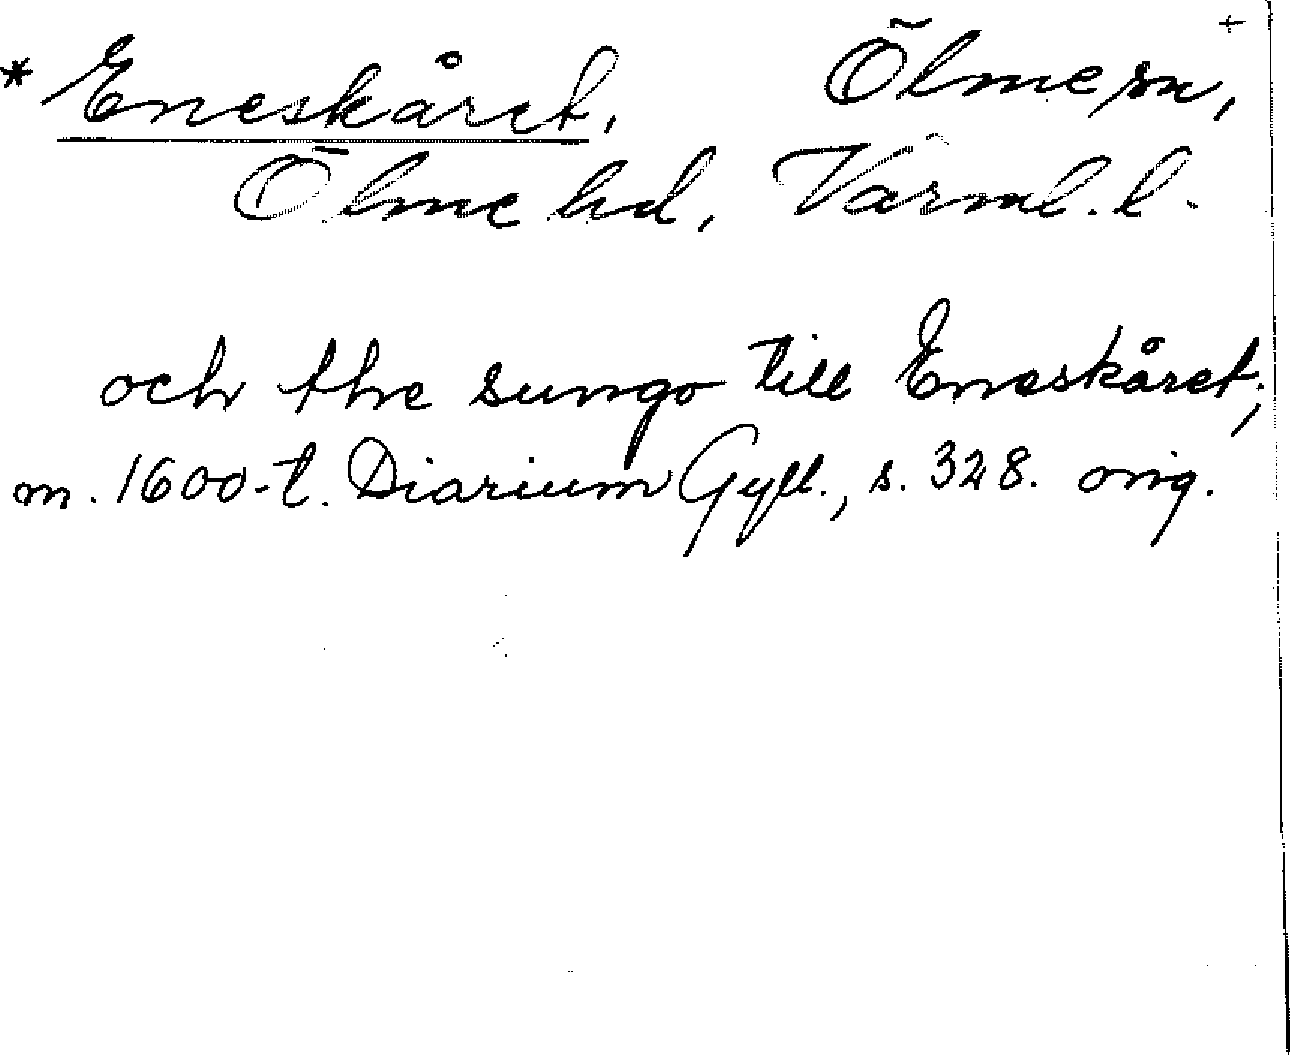 * Eneskåret. Ölme sn, +
Ölme hd, Värml. l.
och the sungo till Eneskåret;
m. 1600-t. Diarium Gyll., s. 328. orig.